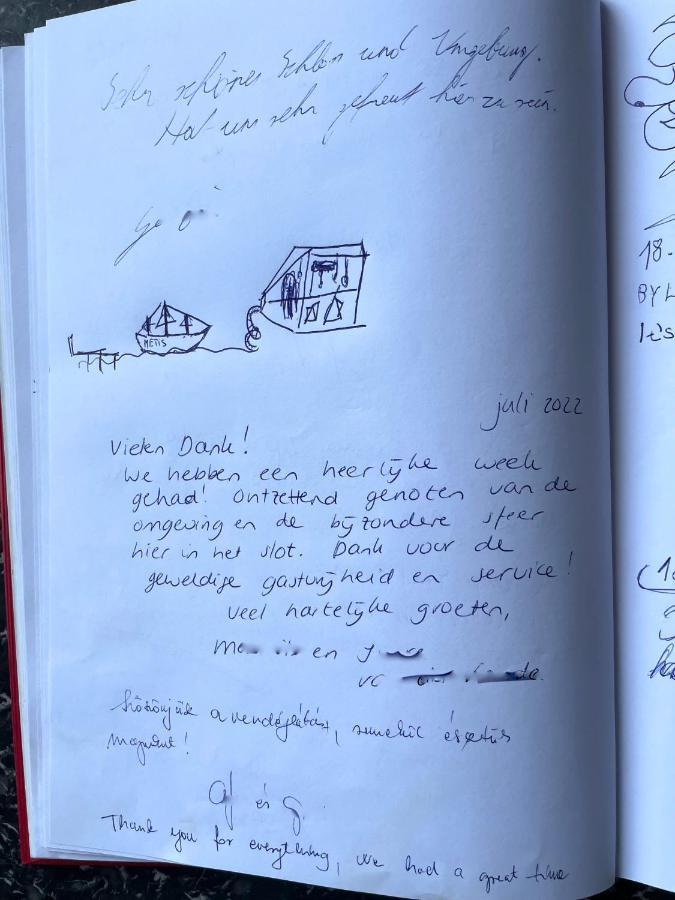 Sehr schönes Schloss und Umgebung.
Hat uns sehr gefreut hier zu sein.
METIS
juli 2022
Vielen Dank!
We hebben een heerlijke week
gehad! Ontzettend genoten van de
omgeving en de bijzondere sfeer
hier in het slot. Dank voor de
geweldige gastvrijheid en service!
Veel hartelijke groeten,
en
Köszönjük a vendéglátást,
magunkat!
és
Thank you for everything, we had a great time
18.
It's